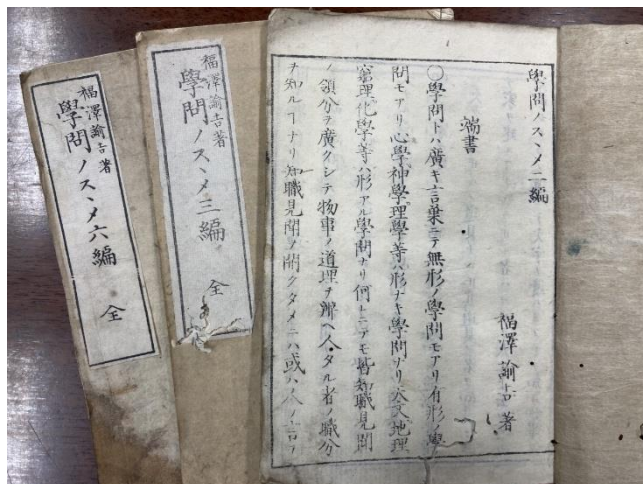 福澤諭吉著
學問ノスヽメ六編 全
福澤諭吉著
學問ノスヽメ三編 全
學問ノスヽメ二編
福澤諭吉著
端書
〇學問トハ廣キ言葉ニテ無形ノ學問モアリ有形ノ學
問モアリ心學神學理學等ハ形ナキ學問ナリ天文地理
窮理化學等ハ形アル學問ナリ何レニテモ皆知職見聞
ノ領分ヲ廣クシテ物事ノ道理ヲ辨ヘ人タル者ノ職分
ヲ知ルヿナリ知職見聞ヲ開クタメニハ或ハ人ノ言ヲ